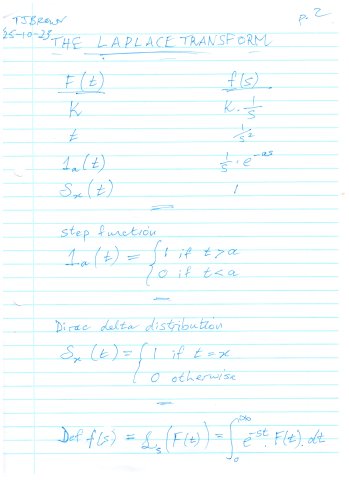 TJBROWN p. 2
25-10-23
THE LAPLACE TRANSFORM
F(t) f(s)
K K · 1/s
t 1/s²
1ₐ(t) 1/s · e^(-as)
δₓ(t) 1
step function
1ₐ(t) = { 1 if t > a
0 if t < a
Dirac delta distribution
δₓ(t) = { 1 if t = x
0 otherwise
Def f(s) = ℒₛ(F(t)) = ∫₀^∞ e^(-st) · F(t) · dt